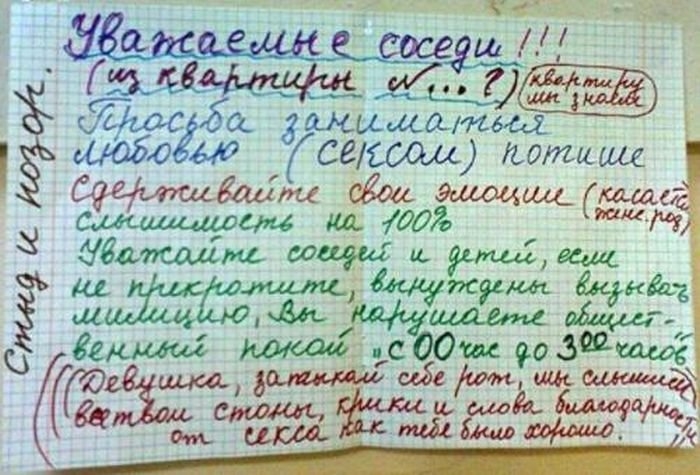 Стыд и позор.
Уважаемые соседи!!!
(из квартиры №...?) (квартиру мы знаем)
Просьба заниматься
любовью (сексом) потише
Сдерживайте свои эмоции (касается женс. род)
слышимость на 100%
Уважайте соседей и детей, если
не прекратите, вынуждены вызывать
милицию, Вы нарушаете общест-
венный покой „с 00 час до 3 00 часов"
((Девушка, затыкай себе рот, мы слышим
все твои стоны, крики и слова благодарности
от секса как тебе было хорошо.))